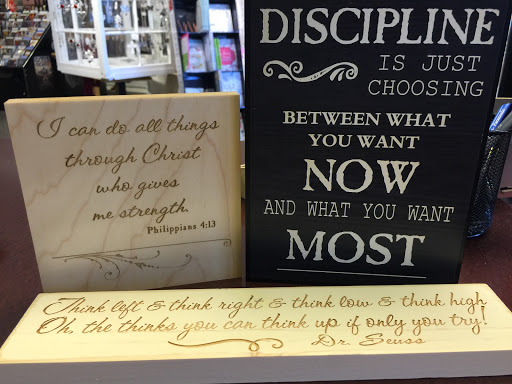 I can do all things
through Christ
who gives
me strength.
Philippians 4:13
DISCIPLINE
IS JUST
CHOOSING
BETWEEN WHAT
YOU WANT
NOW
AND WHAT YOU WANT
MOST
Think left & think right & think low & think high
Oh, the thinks you can think up if only you try!
Dr. Seuss